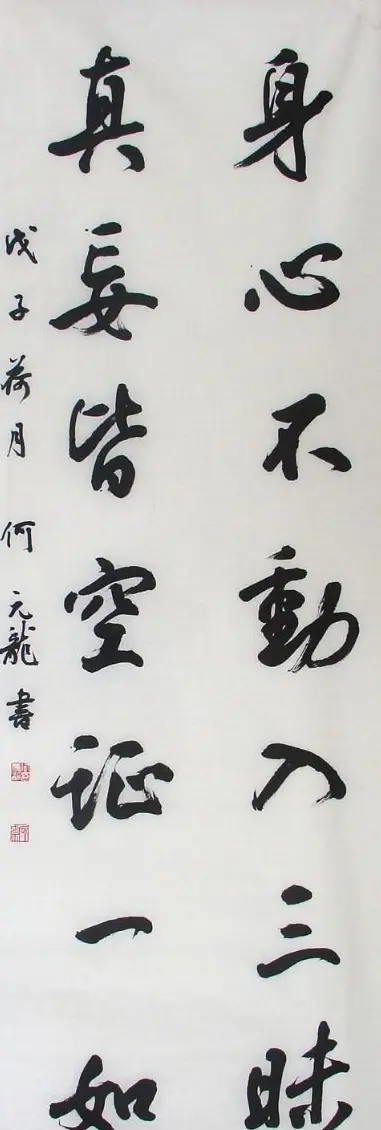 身心不動入三昧
真妄皆空证一如
戊子荷月 何元龍書